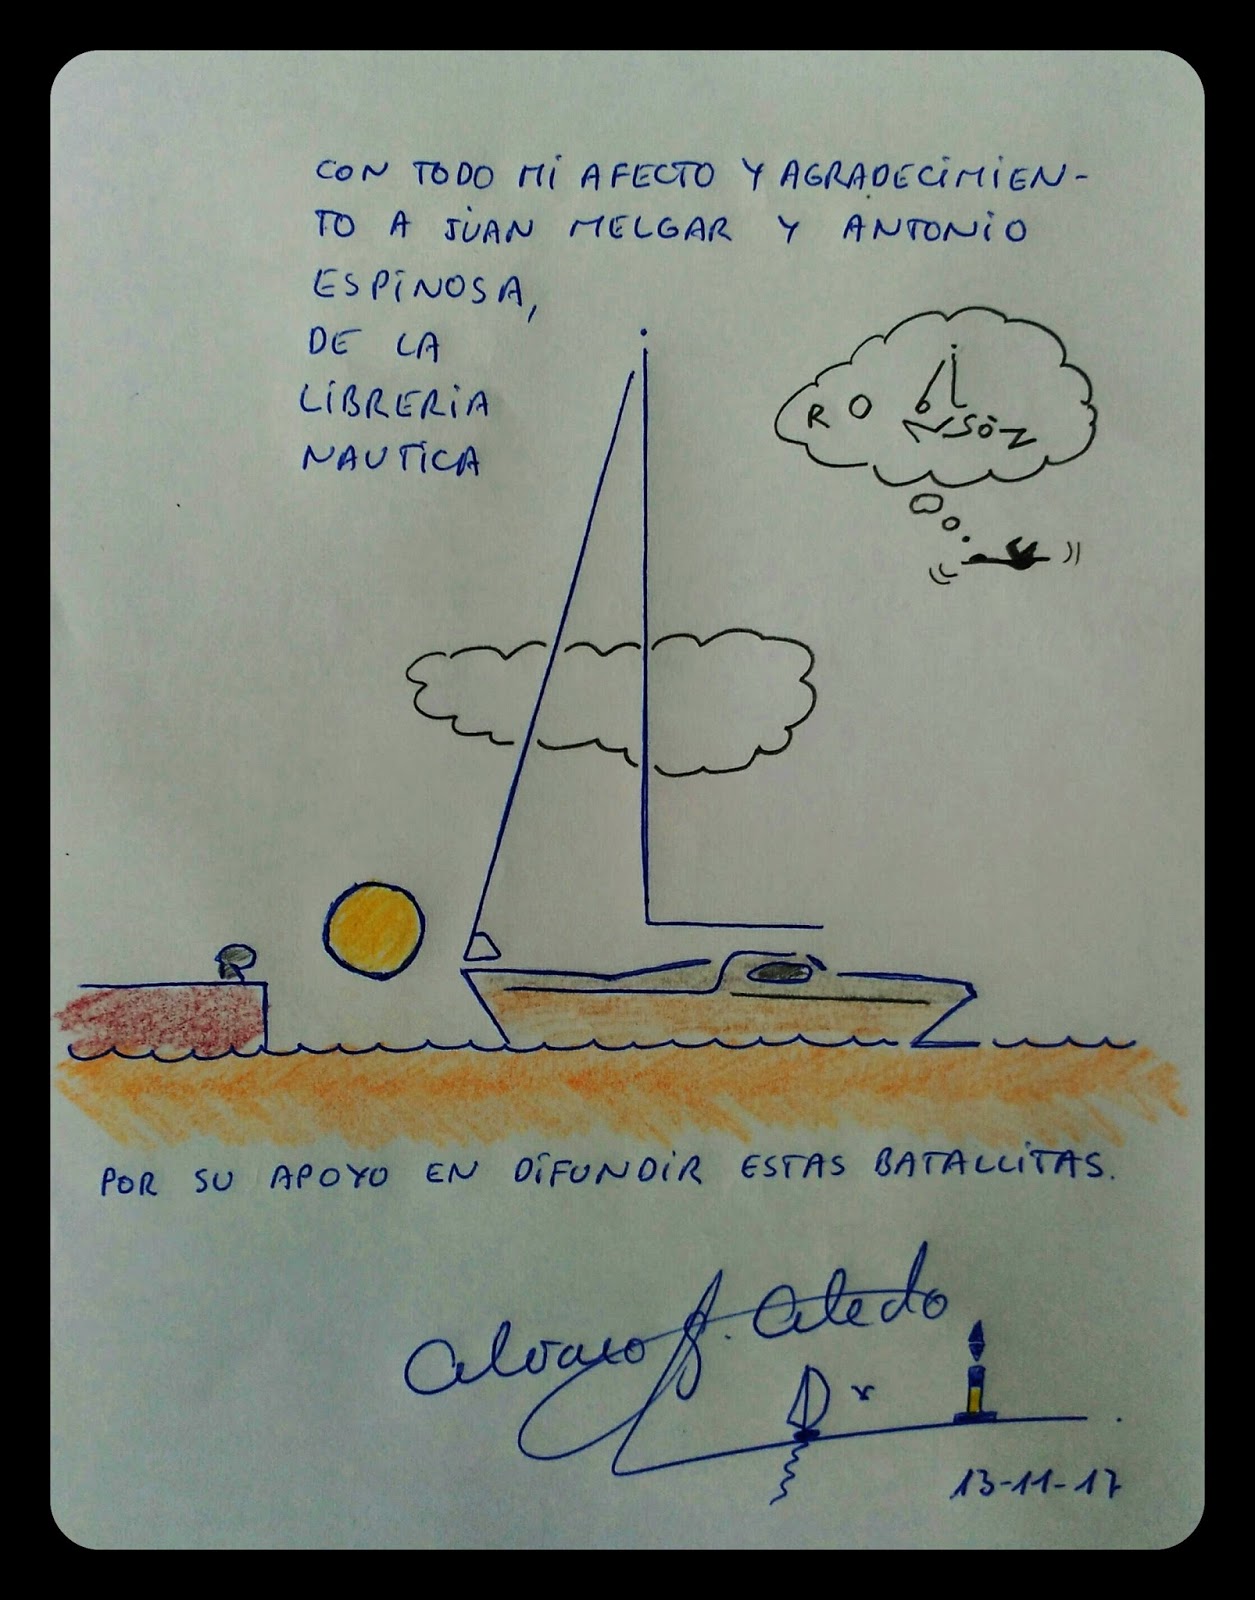 CON TODO MI AFECTO Y AGRADECIMIEN-
TO A JUAN MELGAR Y ANTONIO
ESPINOSA,
DE LA
LIBRERIA
NAUTICA
RO
NSON
POR SU APOYO EN DIFUNDIR ESTAS BATALLITAS.
Alvaro G. Aledo
13-11-17